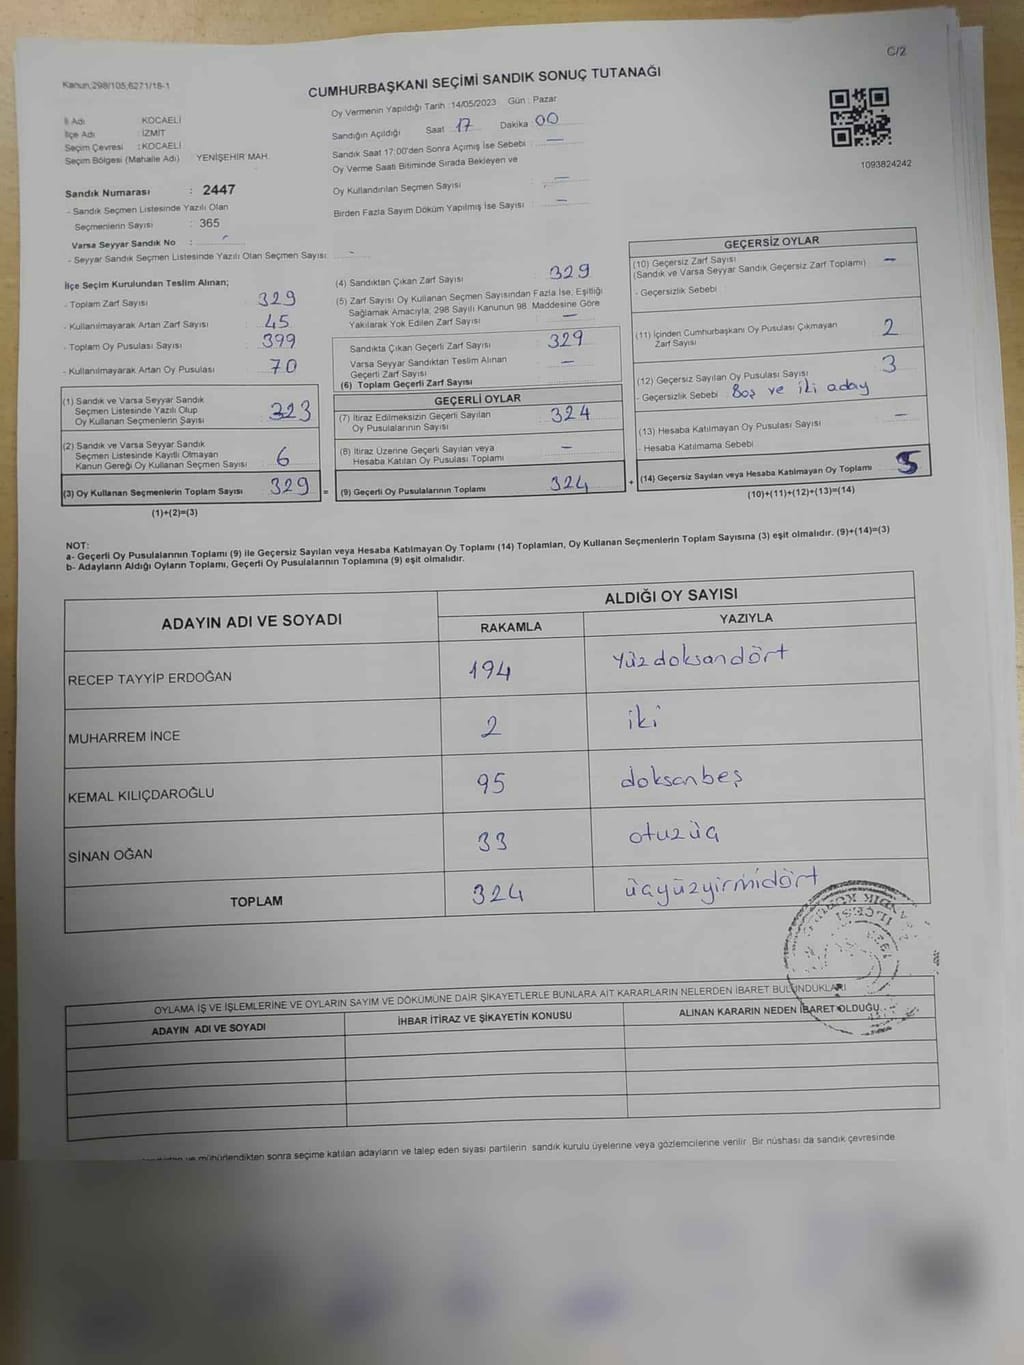 C/2
Kanun,298/105,6271/18-1
CUMHURBAŞKANI SEÇİMİ SANDIK SONUÇ TUTANAĞI
Oy Vermenin Yapıldığı Tarih : 14/05/2023 Gün : Pazar
İl Adı KOCAELİ
İlçe Adı : İZMİT
Seçim Çevresi : KOCAELİ
Seçim Bölgesi (Mahalle Adı) YENİŞEHİR MAH.
Sandığın Açıldığı Saat 17 Dakika 00
Sandık Saat 17:00'den Sonra Açımış İse Sebebi : —
Oy Verme Saati Bitiminde Sırada Bekleyen ve
Oy Kullandırılan Seçmen Sayısı : —
Birden Fazla Sayım Döküm Yapılmış İse Sayısı : —
1093824242
Sandık Numarası : 2447
- Sandık Seçmen Listesinde Yazılı Olan
Seçmenlerin Sayısı : 365
Varsa Seyyar Sandık No : -
- Seyyar Sandık Seçmen Listesinde Yazılı Olan Seçmen Sayısı: -
İlçe Seçim Kurulundan Teslim Alınan;
- Toplam Zarf Sayısı 329
- Kullanılmayarak Artan Zarf Sayısı 45
- Toplam Oy Pusulası Sayısı 399
- Kullanılmayarak Artan Oy Pusulası 70
(1) Sandık ve Varsa Seyyar Sandık
Seçmen Listesinde Yazılı Olup
Oy Kullanan Seçmenlerin Sayısı 323
(2) Sandık ve Varsa Seyyar Sandık
Seçmen Listesinde Kayıtlı Olmayan
Kanun Gereği Oy Kullanan Seçmen Sayısı 6
(3) Oy Kullanan Seçmenlerin Toplam Sayısı 329 =
(1)+(2)=(3)
(4) Sandıktan Çıkan Zarf Sayısı 329
(5) Zarf Sayısı Oy Kullanan Seçmen Sayısından Fazla İse; Eşitliği
Sağlamak Amacıyla, 298 Sayılı Kanunun 98. Maddesine Göre
Yakılarak Yok Edilen Zarf Sayısı —
Sandıkta Çıkan Geçerli Zarf Sayısı 329
Varsa Seyyar Sandıktan Teslim Alınan
Geçerli Zarf Sayısı —
(6) Toplam Geçerli Zarf Sayısı
GEÇERLİ OYLAR
(7) İtiraz Edilmeksizin Geçerli Sayılan
Oy Pusulalarının Sayısı 324
(8) İtiraz Üzerine Geçerli Sayılan veya
Hesaba Katılan Oy Pusulası Toplamı —
(9) Geçerli Oy Pusulalarının Toplamı 324 +
GEÇERSİZ OYLAR
(10) Geçersiz Zarf Sayısı
(Sandık ve Varsa Seyyar Sandık Geçersiz Zarf Toplamı) —
- Geçersizlik Sebebi :
(11) İçinden Cumhurbaşkanı Oy Pusulası Çıkmayan
Zarf Sayısı 2
(12) Geçersiz Sayılan Oy Pusulası Sayısı 3
- Geçersizlik Sebebi : Boş ve iki aday
(13) Hesaba Katılmayan Oy Pusulası Sayısı —
- Hesaba Katılmama Sebebi
(14) Geçersiz Sayılan veya Hesaba Katılmayan Oy Toplamı 5
(10)+(11)+(12)+(13)=(14)
NOT:
a- Geçerli Oy Pusulalarının Toplamı (9) ile Geçersiz Sayılan veya Hesaba Katılmayan Oy Toplamı (14) Toplamları, Oy Kullanan Seçmenlerin Toplam Sayısına (3) eşit olmalıdır. (9)+(14)=(3)
b- Adayların Aldığı Oyların Toplamı, Geçerli Oy Pusulalarının Toplamına (9) eşit olmalıdır.
ADAYIN ADI VE SOYADI ALDIĞI OY SAYISI
RAKAMLA YAZIYLA
RECEP TAYYİP ERDOĞAN 194 yüzdoksandört
MUHARREM İNCE 2 iki
KEMAL KILIÇDAROĞLU 95 doksanbeş
SİNAN OĞAN 33 otuzüç
TOPLAM 324 üçyüzyirmidört
OYLAMA İŞ VE İŞLEMLERİNE VE OYLARIN SAYIM VE DÖKÜMÜNE DAİR ŞİKAYETLERLE BUNLARA AİT KARARLARIN NELERDEN İBARET BULUNDUKLARI
ADAYIN ADI VE SOYADI İHBAR İTİRAZ VE ŞİKAYETİN KONUSU ALINAN KARARIN NEDEN İBARET OLDUĞU
ve mühürlendikten sonra seçime katılan adayların ve talep eden siyasi partilerin sandık kurulu üyelerine veya gözlemcilerine verilir. Bir nüshası da sandık çevresinde